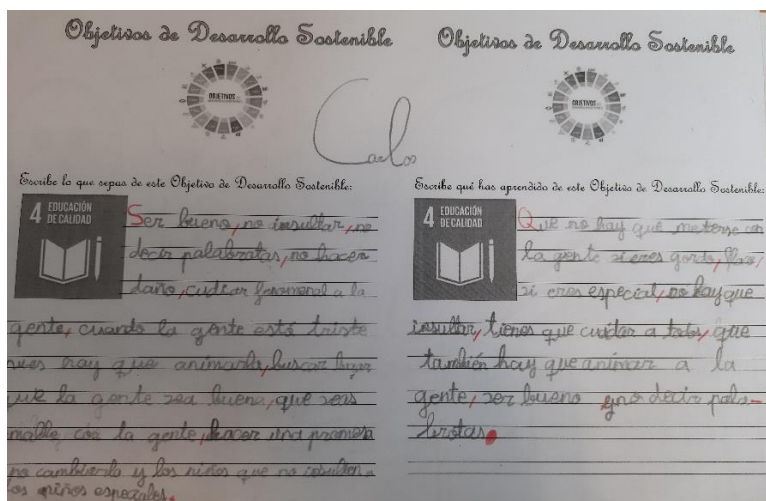 Objetivos de Desarrollo Sostenible
OBJETIVOS
Carlos
Escribe lo que sepas de este Objetivo de Desarrollo Sostenible:
4 EDUCACIÓN
DE CALIDAD
Ser bueno, no insultar, no
decir palabratas, no hacer
daño, cudiar fenomenal a la
gente, cuando la gente está triste
pues hay que animarla, buscar
que la gente sea buena, que seas
amable con la gente, hacer una promesa
no cambiarla y los niños que no insulten a
los niños especiales.
Objetivos de Desarrollo Sostenible
OBJETIVOS
Escribe qué has aprendido de este Objetivo de Desarrollo Sostenible:
4 EDUCACIÓN
DE CALIDAD
Que no hay que meterse con
la gente si eres gordo, flaco,
si eres especial, no hay que
insultar, tienes que cuidar a todos, que
también hay que animar a la
gente, ser bueno y no decir pala-
brotas.